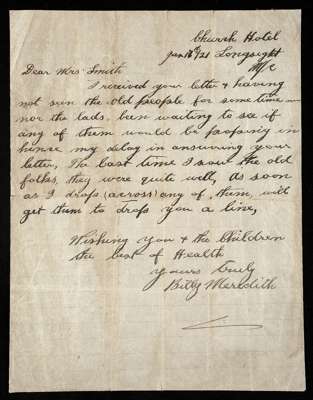 Church Hotel
Jan 18th/21 Longsight
M/c
Dear Mrs Smith
I received your letter & having
not seen the old people for some time now
nor the lads, been waiting to see if
any of them would be passing in
hence my delay in answering your
letter, The last time I saw the old
folks, they were quite well, as soon
as I drops (across) any of, them, will
get them to drops you a line,
Wishing you & the Children
the best of Health
Yours Truly
Billy Meredith